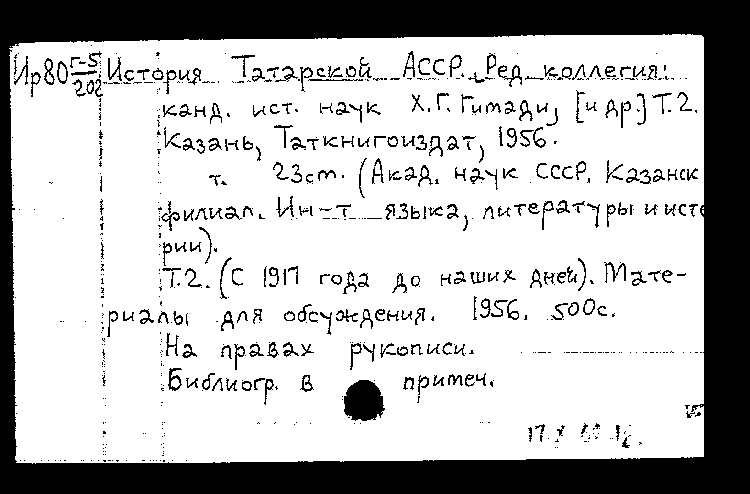 Ир80 Г-5/202 История Татарской АССР. Ред. коллегия:
канд. ист. наук Х.Г. Гимади, [и др.] Т.2.
Казань, Таткнигоиздат, 1956.
т. 23cm. (Акад. наук СССР. Казанск
филиал. Ин-т языка, литературы и исто
рии).
Т.2. (С 1917 года до наших дней). Мате-
риалы для обсуждения. 1956. 500с.
На правах рукописи.
Библиогр. в примеч.